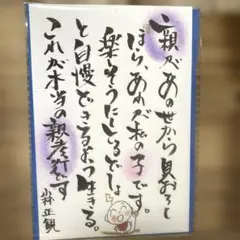 親があの世から見おろし
ほら、あれが私の子です。
楽しそうにいるでしょ
と自慢できるよう生きる。
これが本当の親孝行です
小林正観